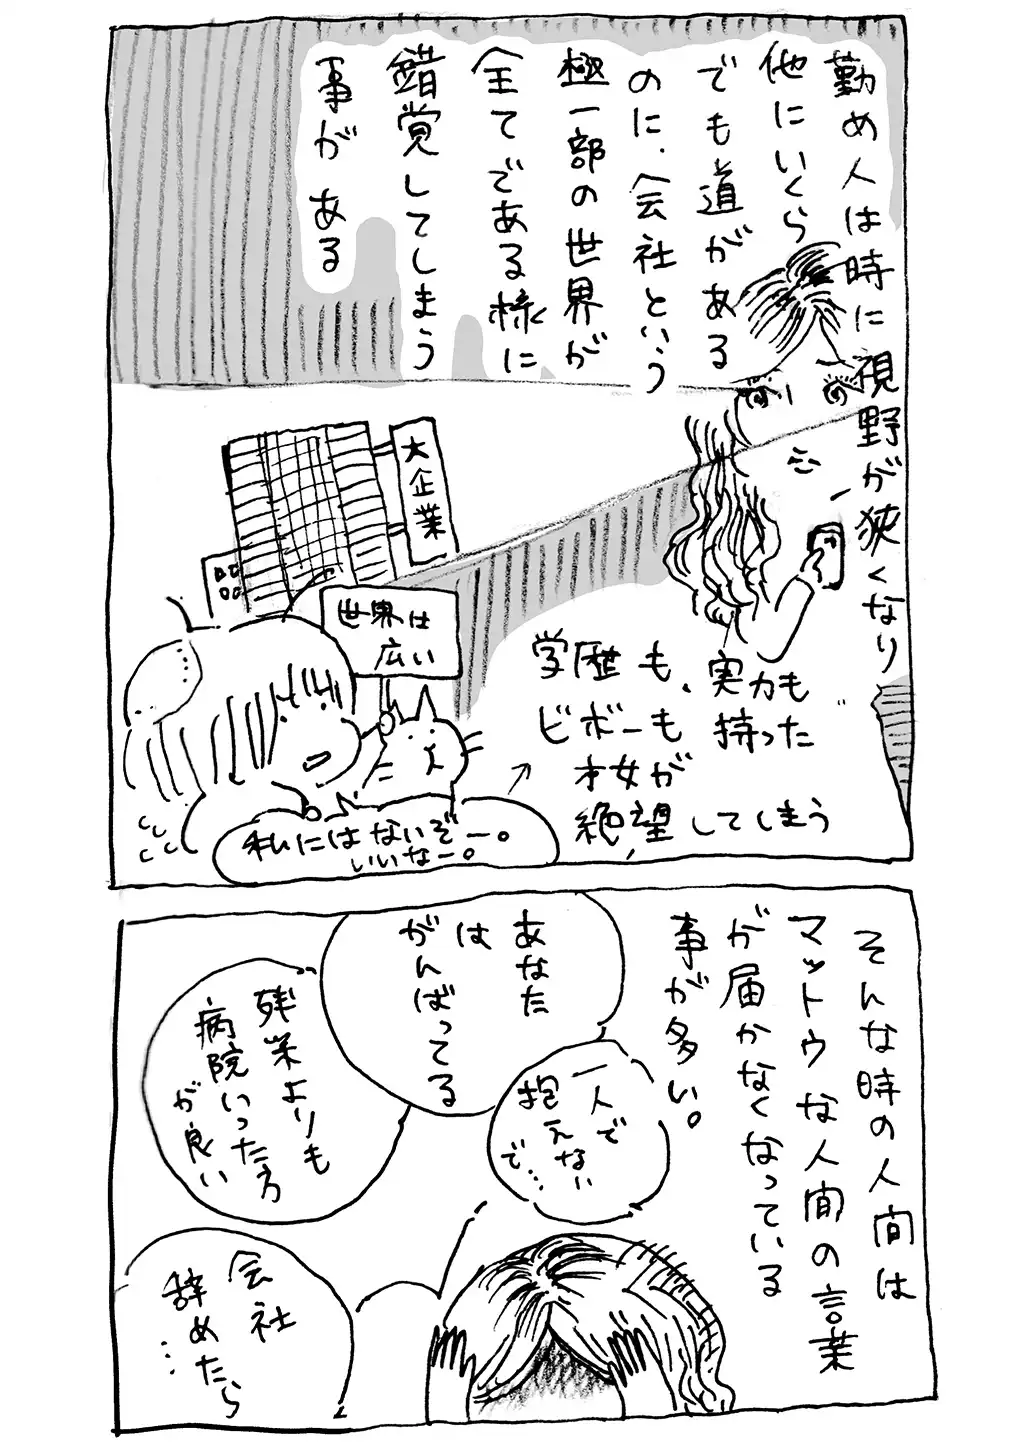 勤め人は時に視野が狭くなり
他にいくら
でも道がある
のに、会社という
極一部の世界が
全てである様に
錯覚してしまう
事がある
大企業
世界は
広い
学歴も、実力も
ビボーも持った
才女が
絶望してしまう
私にはないぞー。
いいなー。
そんな時の人間は
マットウな人間の言葉
が届かなくなっている
事が多い。
あなた
は
がんばってる
一人で
抱えない
で…
残業よりも
病院いった方
が良い
会社
辞めたら
…